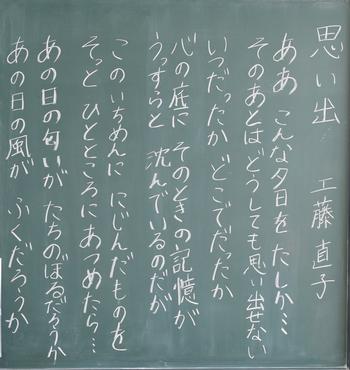 思い出 工藤直子
ああ こんな夕日を たしか…
そのあとはどうしても思い出せない
いつだったか どこでだったか
心の底に そのときの記憶が
うっすらと 沈んでいるのだが
このいちめんに にじんだものを
そっと ひとところに あつめたら…
あの日の匂いが たちのぼるだろうか
あの日の風が ふくだろうか